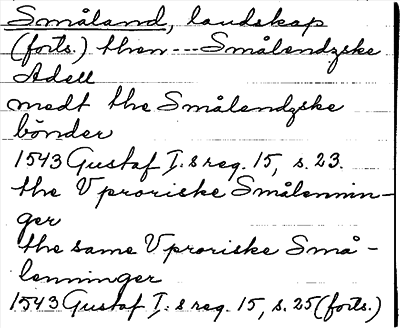 Småland, landskap
(forts.) then --- Smålendzske
Adell
medt the Smålendzske
bönder
1543 Gustaf I:s reg. 15, s. 23.
the Vproriske Smålennin-
ger
the same Vproriske Små-
lenninger
1543 Gustaf I:s reg. 15, s. 25 (forts.)